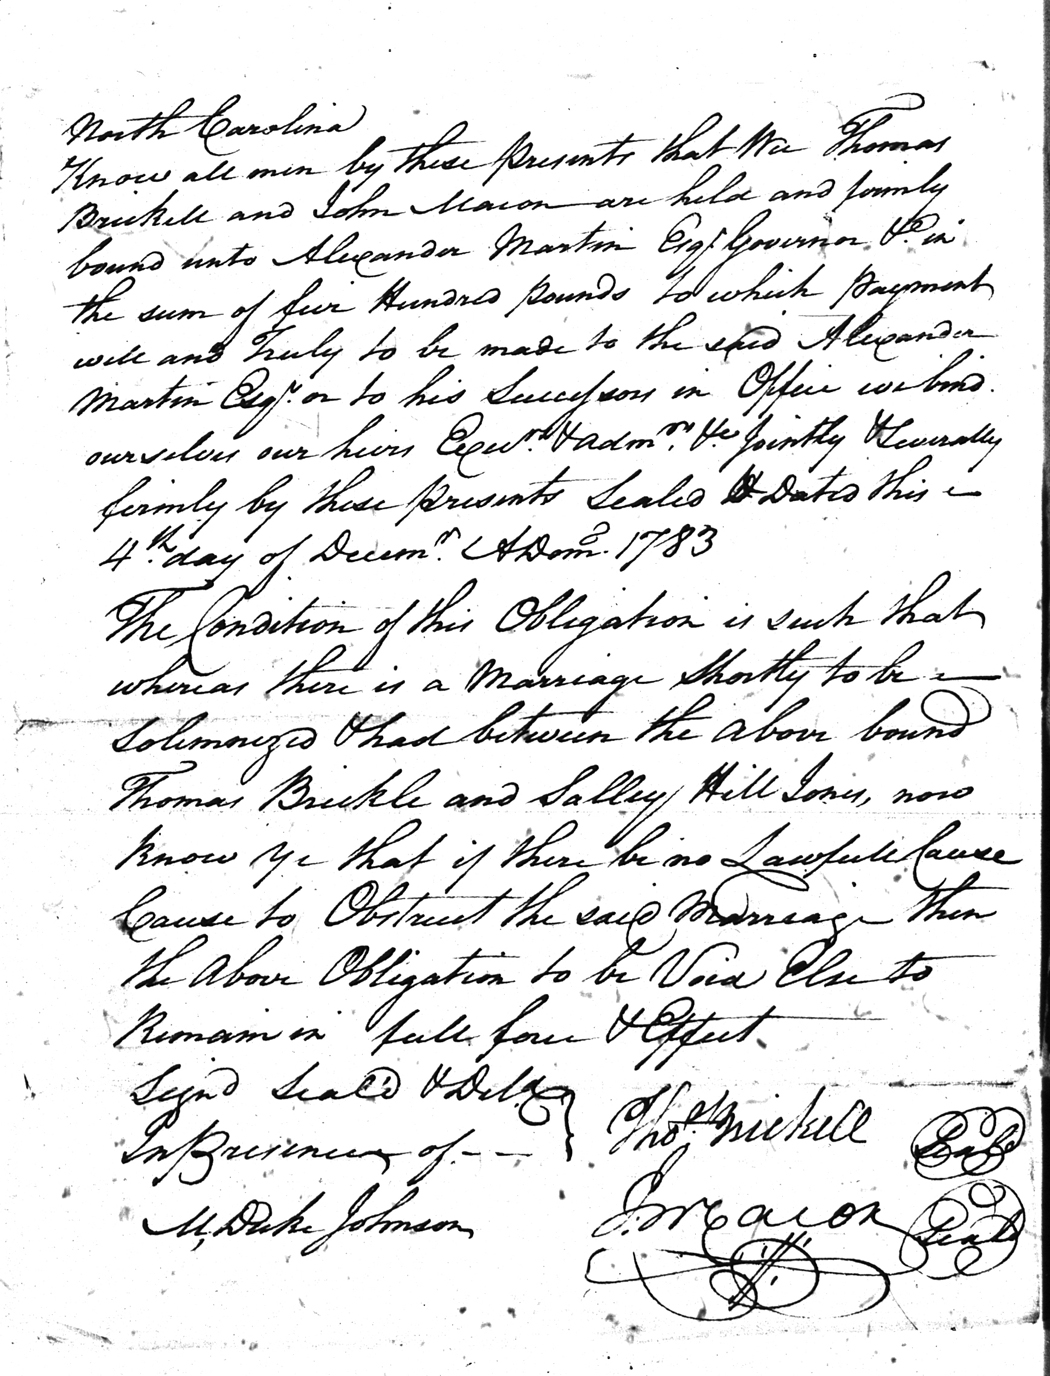 North Carolina
Know all men by these presents that We Thomas
Brickell and John Macon are held and firmly
bound unto Alexander Martin Esqr. Governor &c. in
the sum of five Hundred pounds to which payment
well and Truly to be made to the said Alexander
Martin Esqr. or to his Successors in Office we bind
ourselves our heirs Exers. & Admrs. &c Jointly & Severally
firmly by these presents Sealed & Dated this
4th. day of Decemr. A Dom. 1783
The Condition of this Obligation is such that
whereas there is a Marriage Shortly to be
Solemnized & had between the above bound
Thomas Brickle and Salley Hill Jones, now
Know Ye that if there be no Lawfull Cause
Cause to Obstruct the said Marriage then
the above Obligation to be Void Else to
Remain in full force & Effect
Signd Seal'd & Deld
In Presence of - -
M, Duke Johnson
Thos. Brickell Seal
J. Macon Seal